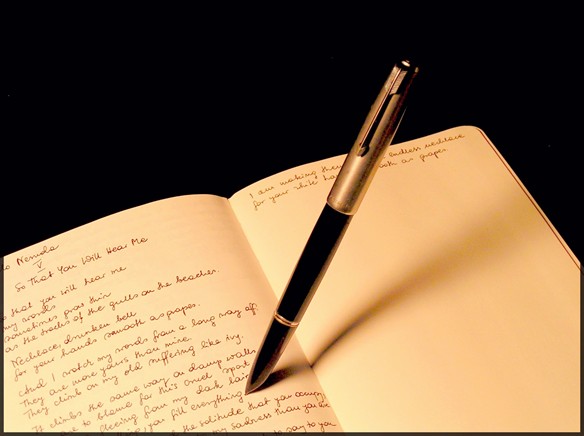 Neruda
V
So That You Will Hear Me
that you will hear me
my words
sometimes grow thin
as the tracks of the gulls on the beaches.
Necklace, drunken bell
for your hands smooth as grapes.
And I watch my words from a long way off.
They are more yours than mine.
They climb on my old suffering like ivy.
It climbs the same way on damp walls
to blame for this cruel sport.
fleeing from my dark lair.
you fill everything
the solitude that you occupy,
my sadness than you are
to say to you
I am making them endless necklace
for your white hands, smooth as grapes.